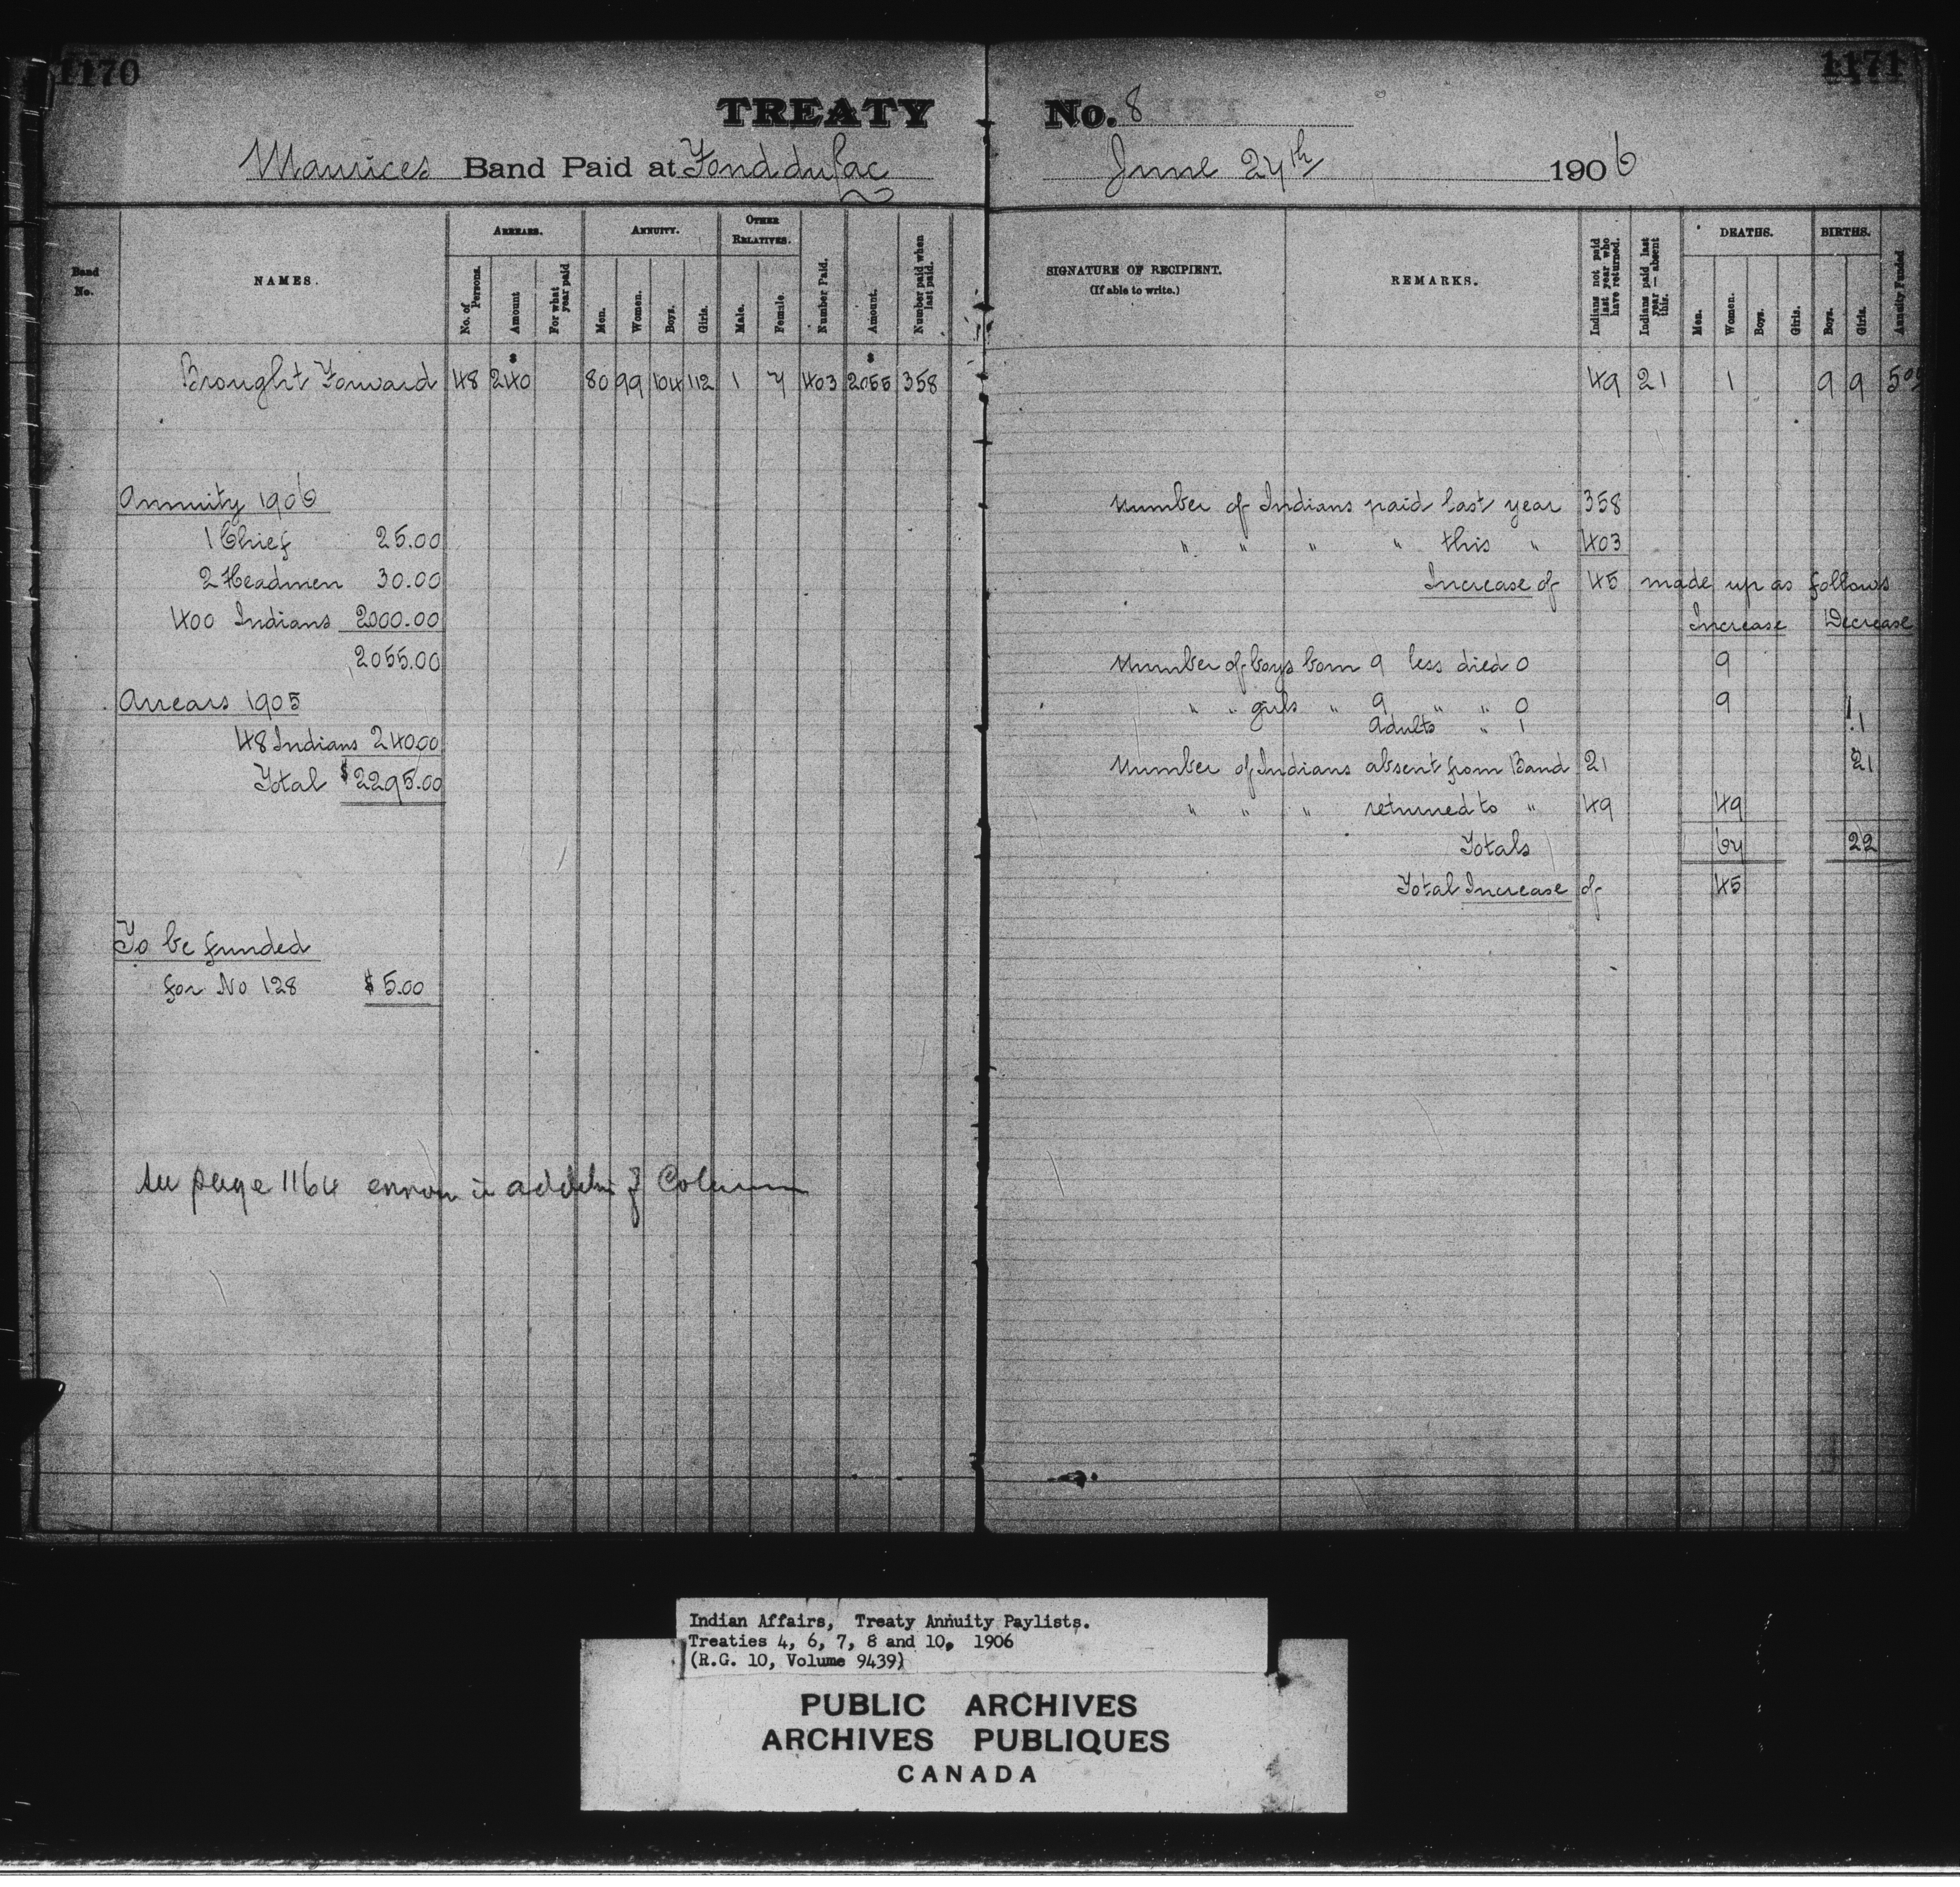 1170
1171
TREATY No. 8
Maurices Band Paid at Fond du Lac June 27th 1906
Band No.
NAMES.
ARREARS.
No. of Persons.
Amount
For what year paid
ANNUITY.
Men.
Women.
Boys.
Girls.
OTHER RELATIVES.
Male.
Female.
Number Paid.
Amount.
Number paid when last paid.
SIGNATURE OF RECIPIENT.
(If able to write.)
REMARKS.
Indians not paid last year who have returned.
Indians paid last year — absent this.
DEATHS.
Men.
Women.
Boys.
Girls.
BIRTHS.
Boys.
Girls.
Annuity Funded
$ $
Brought Forward 48 240 80 99 104 112 1 7 403 2055 358 49 21 1 9 9 5.00
Annuity 1906
1 Chief 25.00
2 Headmen 30.00
400 Indians 2000.00
2055.00
Arrears 1905
48 Indians 240.00
Total $2295.00
To be funded
for No 128 $5.00
See page 1164 error in addition of Column
Number of Indians paid last year 358
" " " " this " 403
Increase of 45 made up as follows
Increase Decrease
Number of boys born 9 less died 0 9
" " girls " 9 " " 0 9
Adults " 1 1
Number of Indians absent from Band 21 21
" " " returned to " 49 49
Totals 67 22
Total Increase of 45
Indian Affairs, Treaty Annuity Paylists.
Treaties 4, 6, 7, 8 and 10, 1906
(R.G. 10, Volume 9439)
PUBLIC ARCHIVES
ARCHIVES PUBLIQUES
CANADA